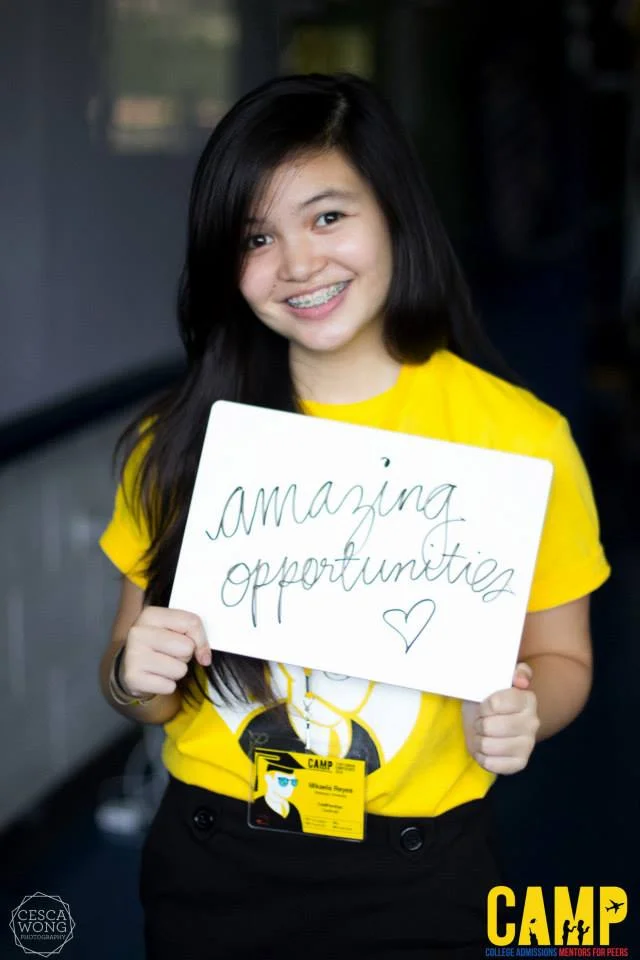 amazing
opportunities
CAMP
Mikaela Reyes
CESCA
WONG
PHOTOGRAPHY
CAMP
COLLEGE ADMISSIONS MENTORS FOR PEERS